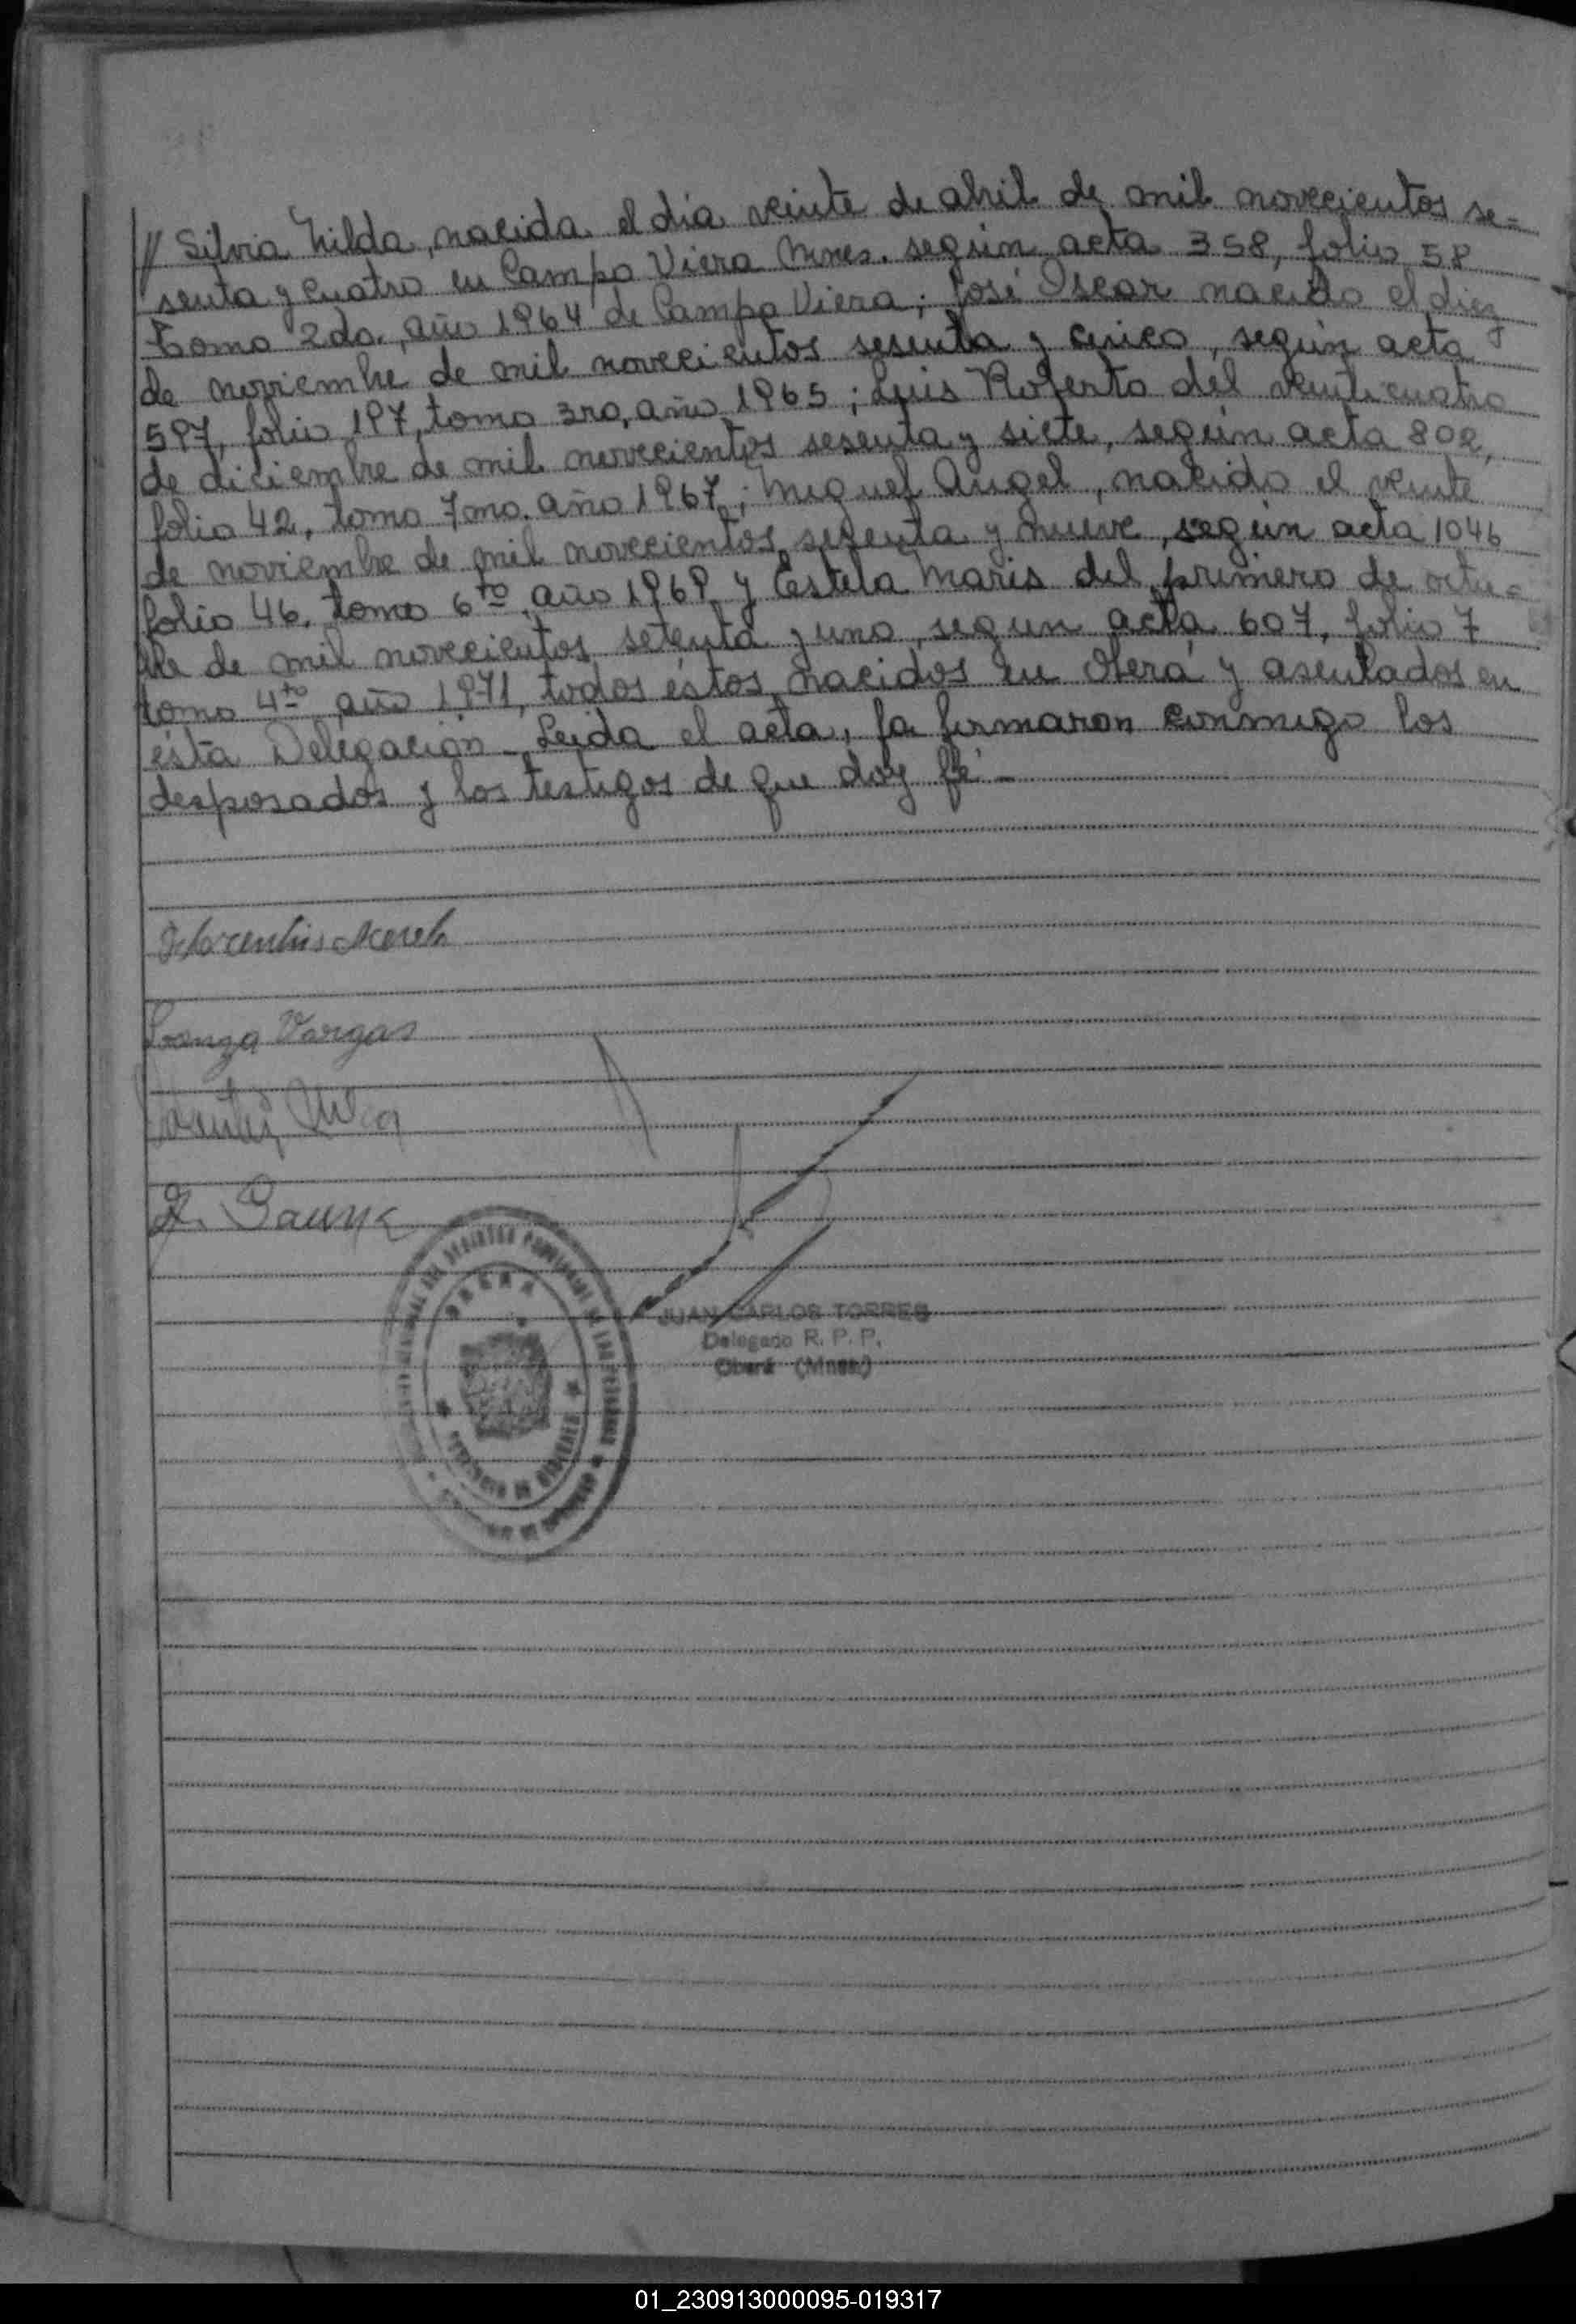 // Silvia Nilda, nacida el día veinte de abril de mil novecientos se=
senta y cuatro en Campo Viera Mnes. según acta 358, folio 58
tomo 2do., año 1964 de Campo Viera; José Oscar nacido el diez
de noviembre de mil novecientos sesenta y cinco, según acta
597, folio 197, tomo 3ro, año 1965; Luis Roberto del veinticuatro
de diciembre de mil novecientos sesenta y siete, según acta 802,
folio 42, tomo 7mo. año 1967; Miguel Angel, nacido el veinte
de noviembre de mil novecientos sesenta y nueve, según acta 1046
folio 46, tomo 6to, año 1969 y Estela Maris del primero de octu=
bre de mil novecientos setenta y uno, según acta 607, folio 7
tomo 4to, año 1971, todos éstos nacidos en Oberá y asentados en
ésta Delegación - Leida el acta, la firmaron conmigo los
desposados y los testigos de que doy fé -
Vargas
JUAN CARLOS TORRES
Delegado R. P. P.
Oberá (Mnes.)
OBERA
PROVINCIA DE MISIONES
01_230913000095-019317